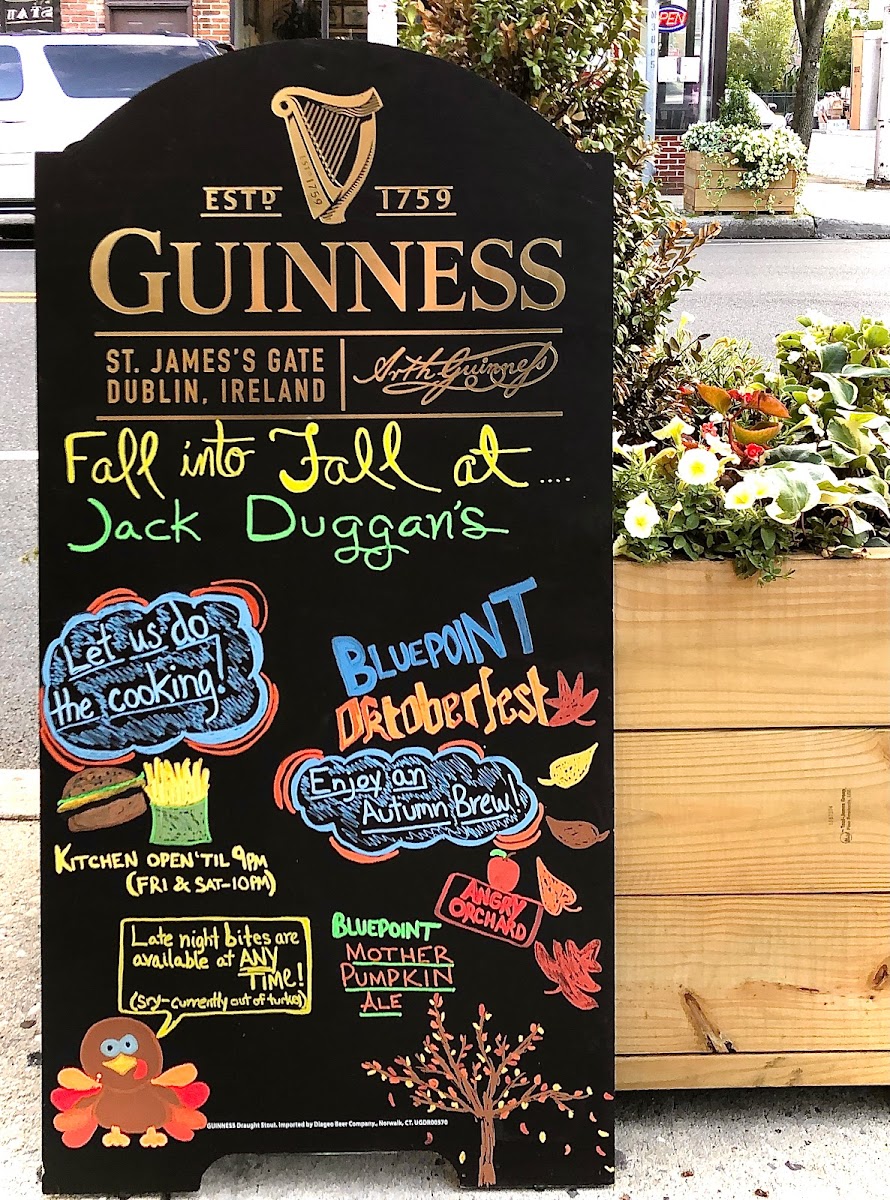 OPEN
ESTD 1759
EST 1759
GUINNESS
ST. JAMES'S GATE
DUBLIN, IRELAND
Arth Guinness
Fall into Fall at ....
Jack Duggan's
Let us do
the cooking!
BLUEPOINT
Oktoberfest
Enjoy an
Autumn Brew!
KITCHEN OPEN 'TIL 9PM
(FRI & SAT-10PM)
ANGRY
ORCHARD
Late night bites are
available at ANY
TIME!
(sry-currently out of turkey)
BLUEPOINT
MOTHER
PUMPKIN
ALE
GUINNESS Draught Stout. Imported by Diageo Beer Company, Norwalk, CT. UGDR00570